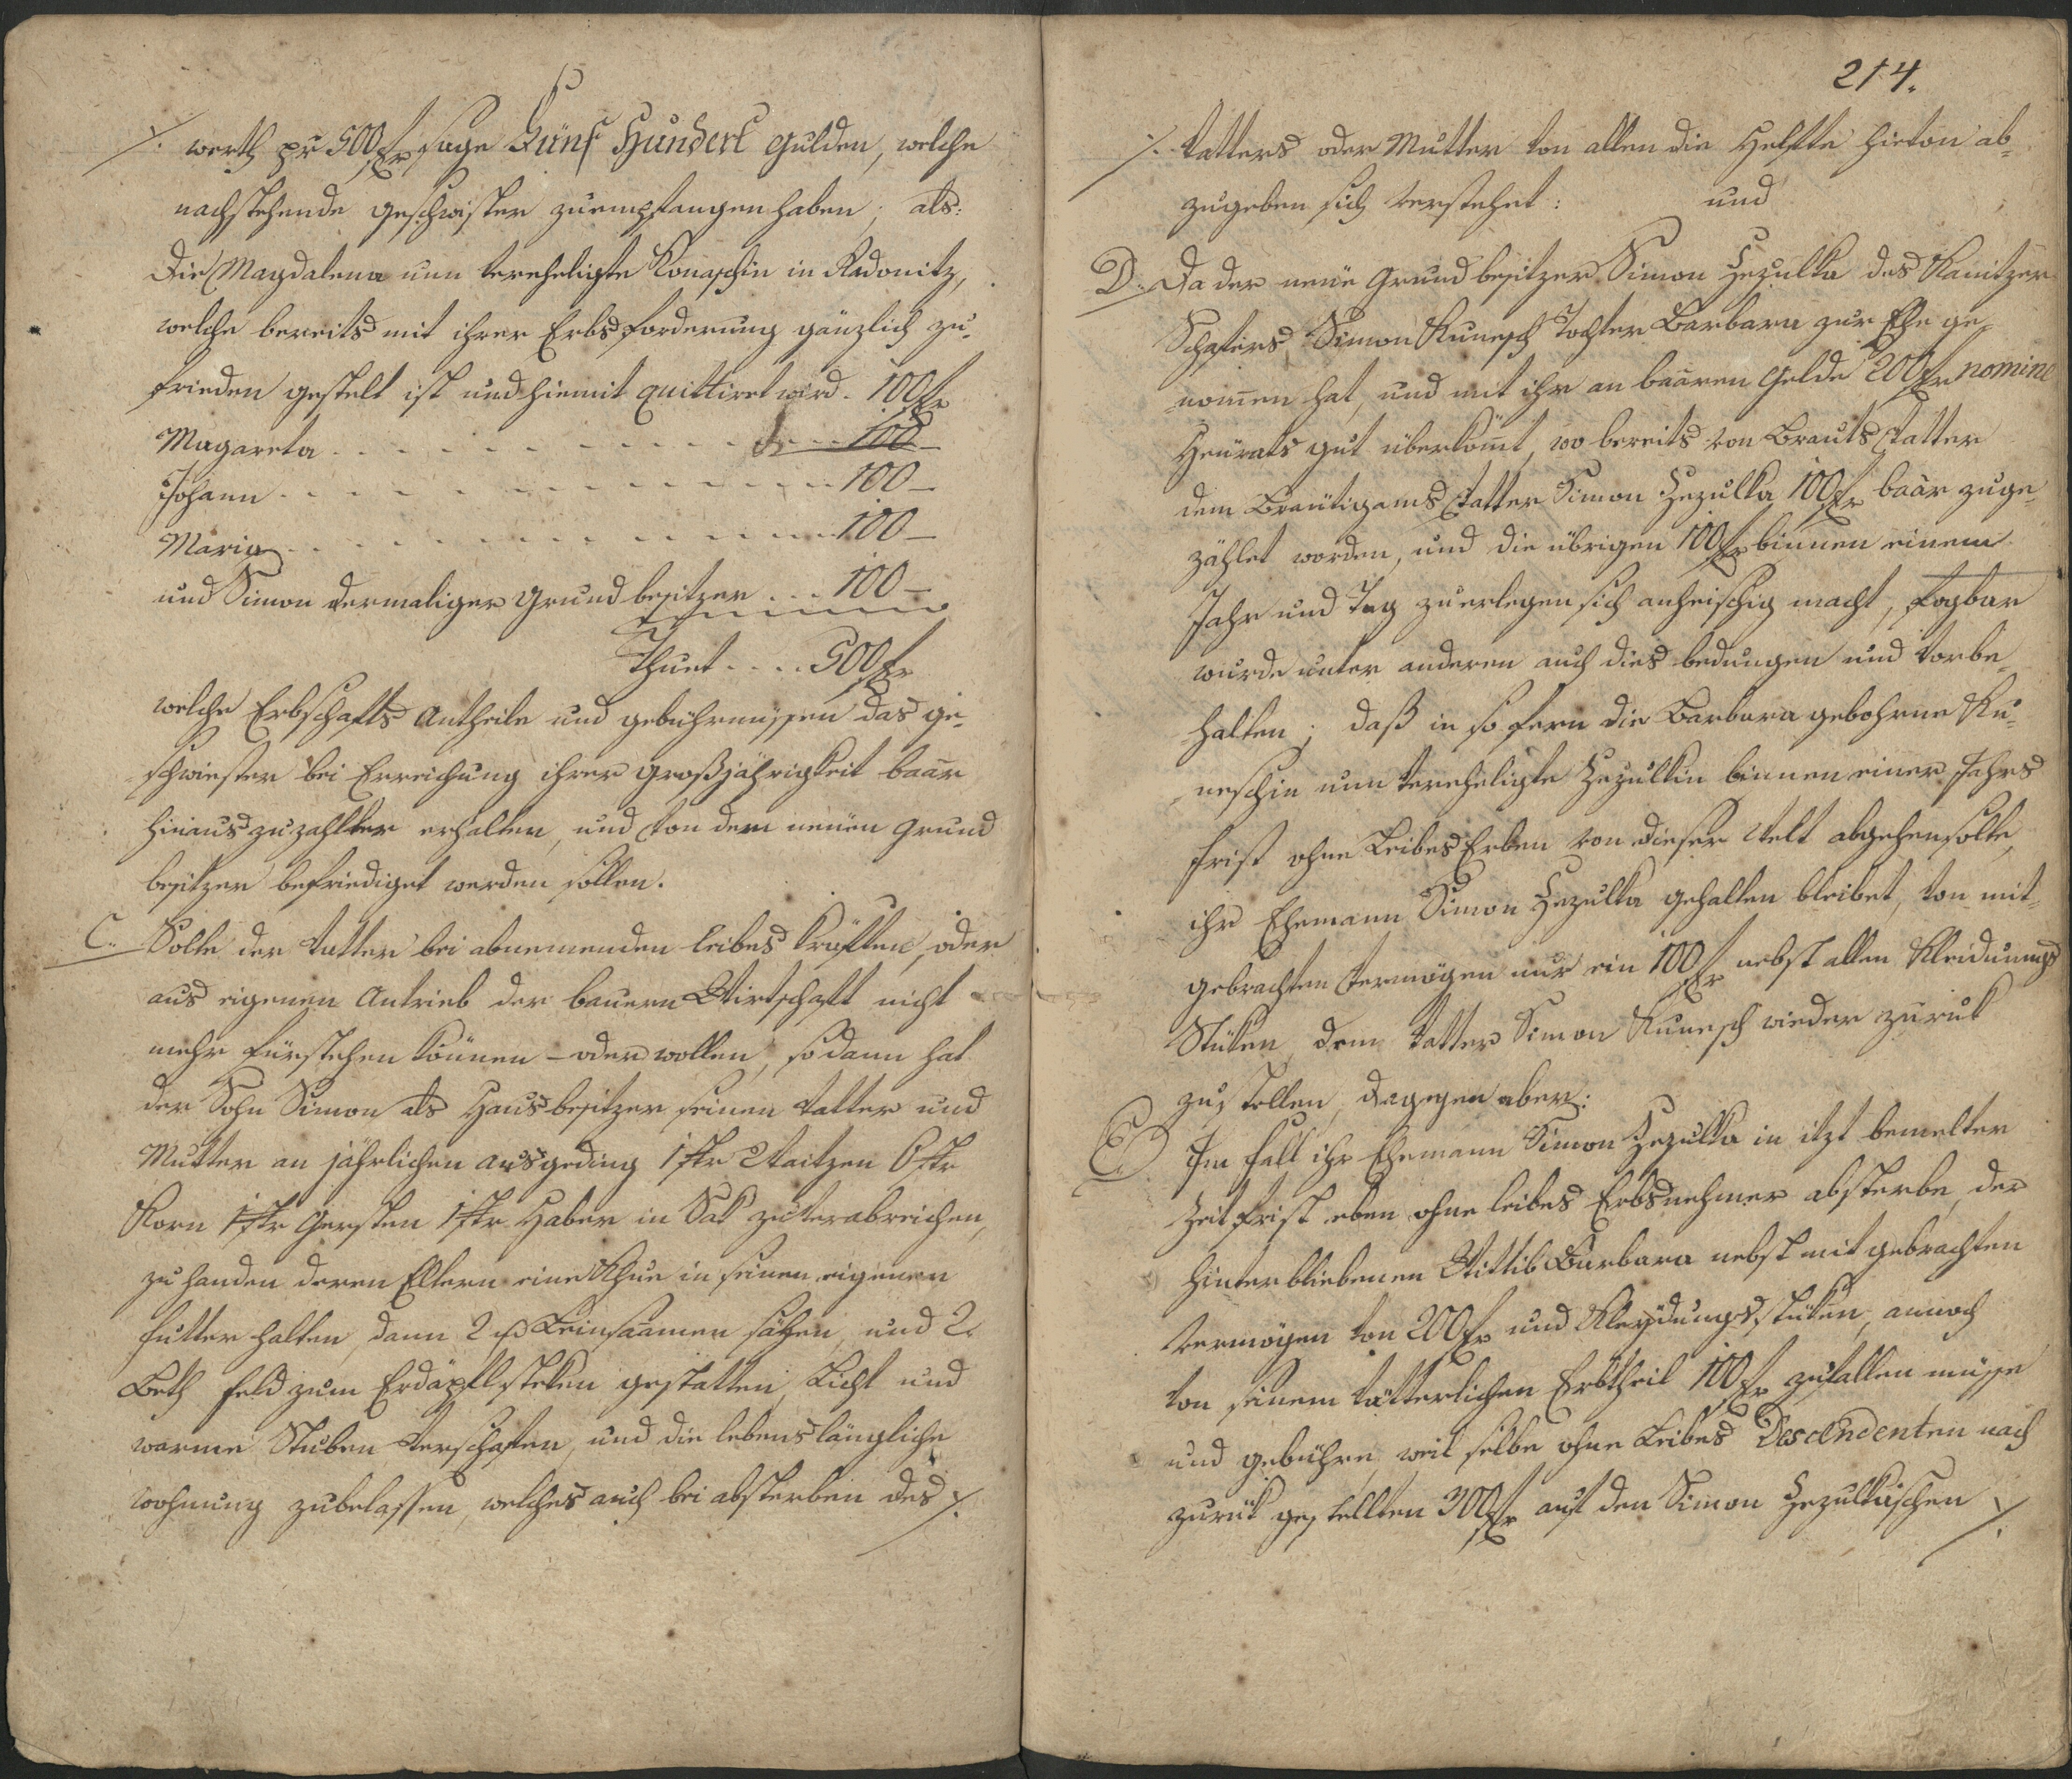 ·/. werth pr 500 fr sage Fünf Hundert Gulden, welche
nachstehende geschwister zuempfangen haben, als:
Die Magdalena nun vereheligte Konaschin in Radonitz,
welche bereits mit ihrer Erbsforderung gänzlich zu-
frieden gestelt ist und hiemit quittiret wird . 100 fr
Magareta . . . . . . . . . . 100 –
Johann . . . . . . . . . . 100 –
Maria . . . . . . . . . . 100 –
und Simon dermaliger Grund besitzer . . . 100 –
Thuet . . . . 500 fr
welche Erbschafts Antheile und gebührnussen das ge-
schwiester bei Erreichung ihrer großjährigkeit baar
hinauszuzahlter erhalten, und von dem neuen Grund
besitzer befriediget werden sollen.
C. Solte der Vatter bei abnemenden leibes kräften, oder
aus eigenen Antrieb der bauern Wirtschaft nicht
mehr fürstehen können – oder wollen, so dann hat
der Sohn Simon als Hausbesitzer seinen Vatter und
Mutter an jährlichen ausgeding 1 str Waitzen 6 str
Korn 1 str Gersten 1 str Haber in Sak zuverabreichen,
zu handen deren Eltern eine Khue in seinen eigenen
futter halten, dann 2 Leinsaamen sähen, und 2
Beth feld zum Erdäpfl steken gestatten, Licht und
warme Stuben verschaffen, und die lebenslängliche
wohnung zubelassen, welches auch bei absterben des ·/.
214.
·/. Vatters oder Mutter von allen die Helfte hievon ab-
zugeben sich verstehet: und
D. Da der neue Grundbesitzer Simon Hezulka des Kanitzer
Schafers Simon Kunesch Tochter Barbara zur Ehe ge-
nomen hat, und mit ihr an baaren Gelde 200 fr nomine
Heurats gut überkomt, wo bereits von Brauts Vatter
dem Bräutigams Vatter Simon Hezulka 100 fr baar zuge-
zählet worden, und die übrigen 100 fr binnen einem
Jahr und Tag zuerlegen sich anheischig macht, fogbar
wurde unter anderen auch dies bedungen und vorbe-
halten; daß in so fern die Barbara gebohrne Ku-
neschin nun vereheligte Hezulkin binnen einer Jahrs
frist ohne Leibes Erben von dieser Welt abgehen solte,
ihr Ehemann Simon Hezulka gehalten bleibet, von mit-
gebrachten Vermögen nur ein 100 fr nebst allen Kleidungs
Stüken dem Vatter Simon Kunesch wieder zuruk
zustellen, dagegen aber:
E. Im fall ihr Ehemann Simon Hezulka in itzt bemelter
Zeit frist eben ohne leibes Erbsnehmer absterbe, der
hinterbliebenen Wittib Barbara nebst mit gebrachten
Vermögen von 200 fr und Kleydungs stüken, annoch
von seinem vätterlichen Erbtheil 100 fr zufallen müsse
und gebühre, weil selbe ohne Leibes Descendenten nach
zuruk gestellten 300 fr auf den Simon Hezulkischen ·/.